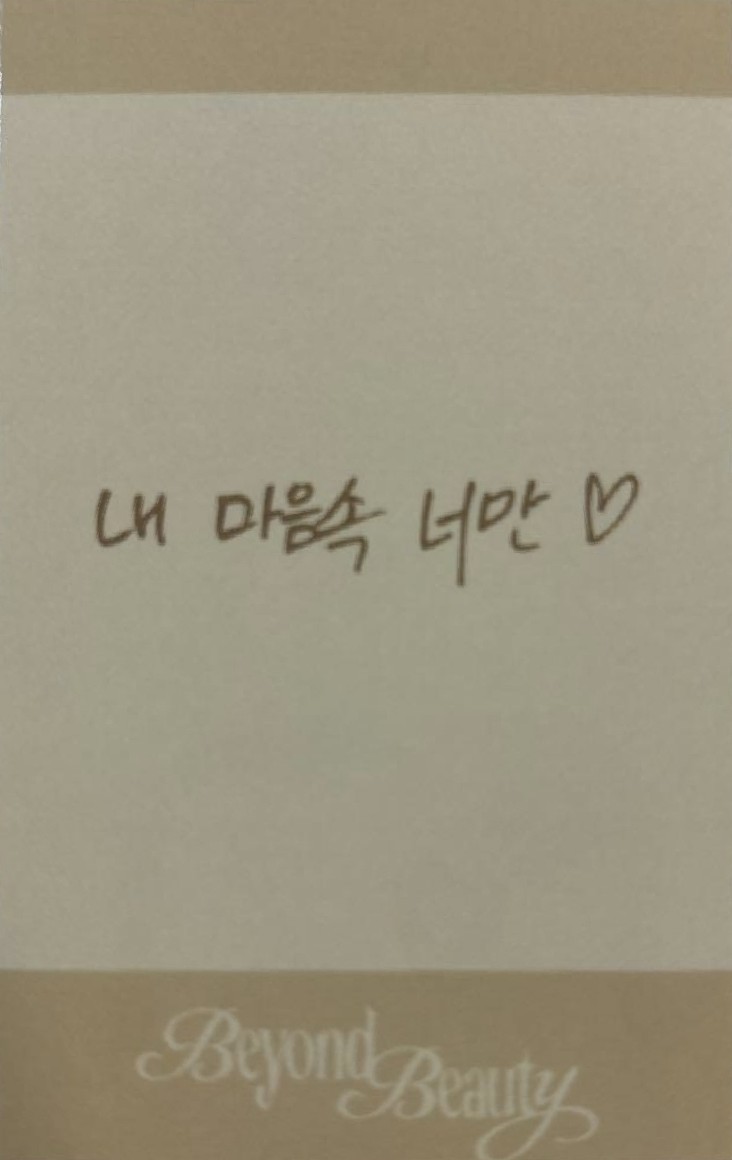 내 마음속 너만 ♡
Beyond
Beauty